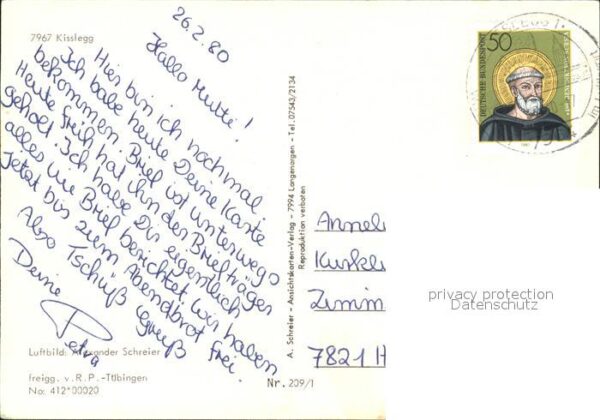 7967 Kisslegg
26.2.80
Hallo Mutti!
Hier bin ich nochmal.
Ich habe heute Deine Karte
bekommen. Brief ist unterwegs
Heute früh hat ihn der Briefträger
geholt. Ich habe Dir eigentlich
alles im Brief berichtet. Wir haben
Jetzt bis zum Abendbrot frei.
Also Tschüß Gruß
Deine
Petra
Luftbild: Alexander Schreier
freigg. v. R.P. - Ttlbingen
No: 412*00020
A. Schreier - Ansichtskarten-Verlag - 7994 Langenargen - Tel. 07543/2134
Reproduktion verboten
Nr. 209/1
DEUTSCHE BUNDESPOST
50
Annel
Kurkl
Zimm
7821 H
privacy protection
Datenschutz